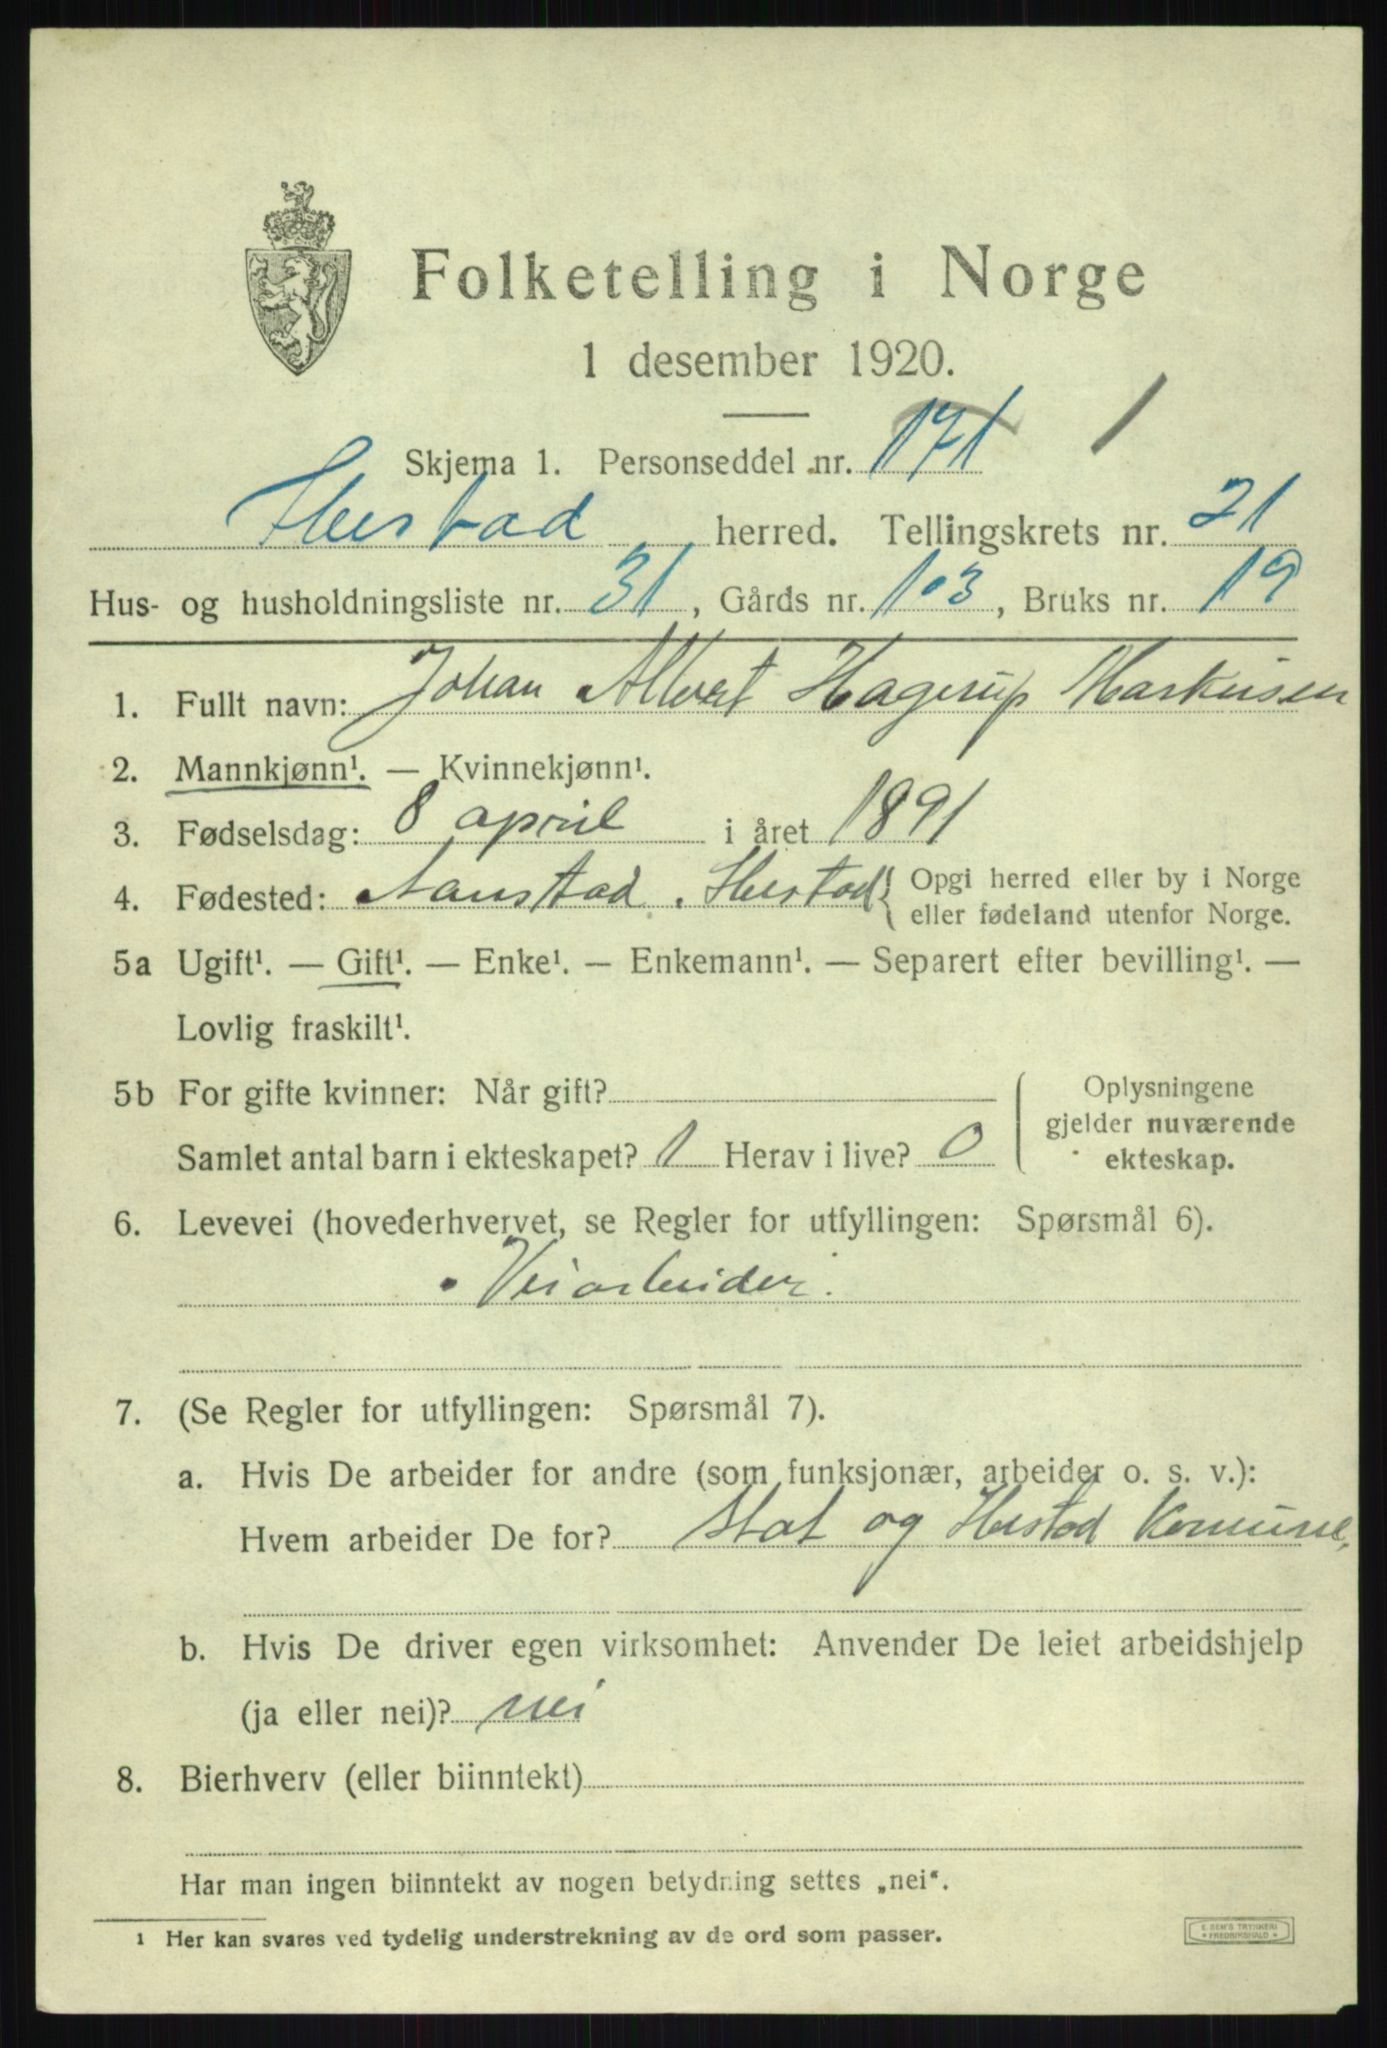 Folketelling i Norge
1 desember 1920.
Skjema 1. Personseddel nr. 171 1
Ibestad herred. Tellingskrets nr. 21
Hus- og husholdningsliste nr. 31, Gårds nr. 103, Bruks nr. 19
1. Fullt navn: Johan Albert Hagerup Markusen
2. Mannkjønn¹. — Kvinnekjønn¹.
3. Fødselsdag: 8 april i året 1891
4. Fødested: Aanstad. Ibestad { Opgi herred eller by i Norge
eller fødeland utenfor Norge.
5a Ugift¹. — Gift¹. — Enke¹. — Enkemann¹. — Separert efter bevilling¹. —
Lovlig fraskilt¹.
5b For gifte kvinner: Når gift?
Samlet antal barn i ekteskapet? 1 Herav i live? 0
Oplysningene
gjelder nuværende
ekteskap.
6. Levevei (hovederhvervet, se Regler for utfyllingen: Spørsmål 6).
Veiarbeider.
7. (Se Regler for utfyllingen: Spørsmål 7).
a. Hvis De arbeider for andre (som funksjonær, arbeider o. s. v.):
Hvem arbeider De for? Stat og Ibestad Komune,
b. Hvis De driver egen virksomhet: Anvender De leiet arbeidshjelp
(ja eller nei)? nei
8. Bierhverv (eller biinntekt)
Har man ingen biinntekt av nogen betydning settes „nei“.
1 Her kan svares ved tydelig understrekning av de ord som passer.
E. SEM'S TRYKKERI
* FREDRIKSHALD *